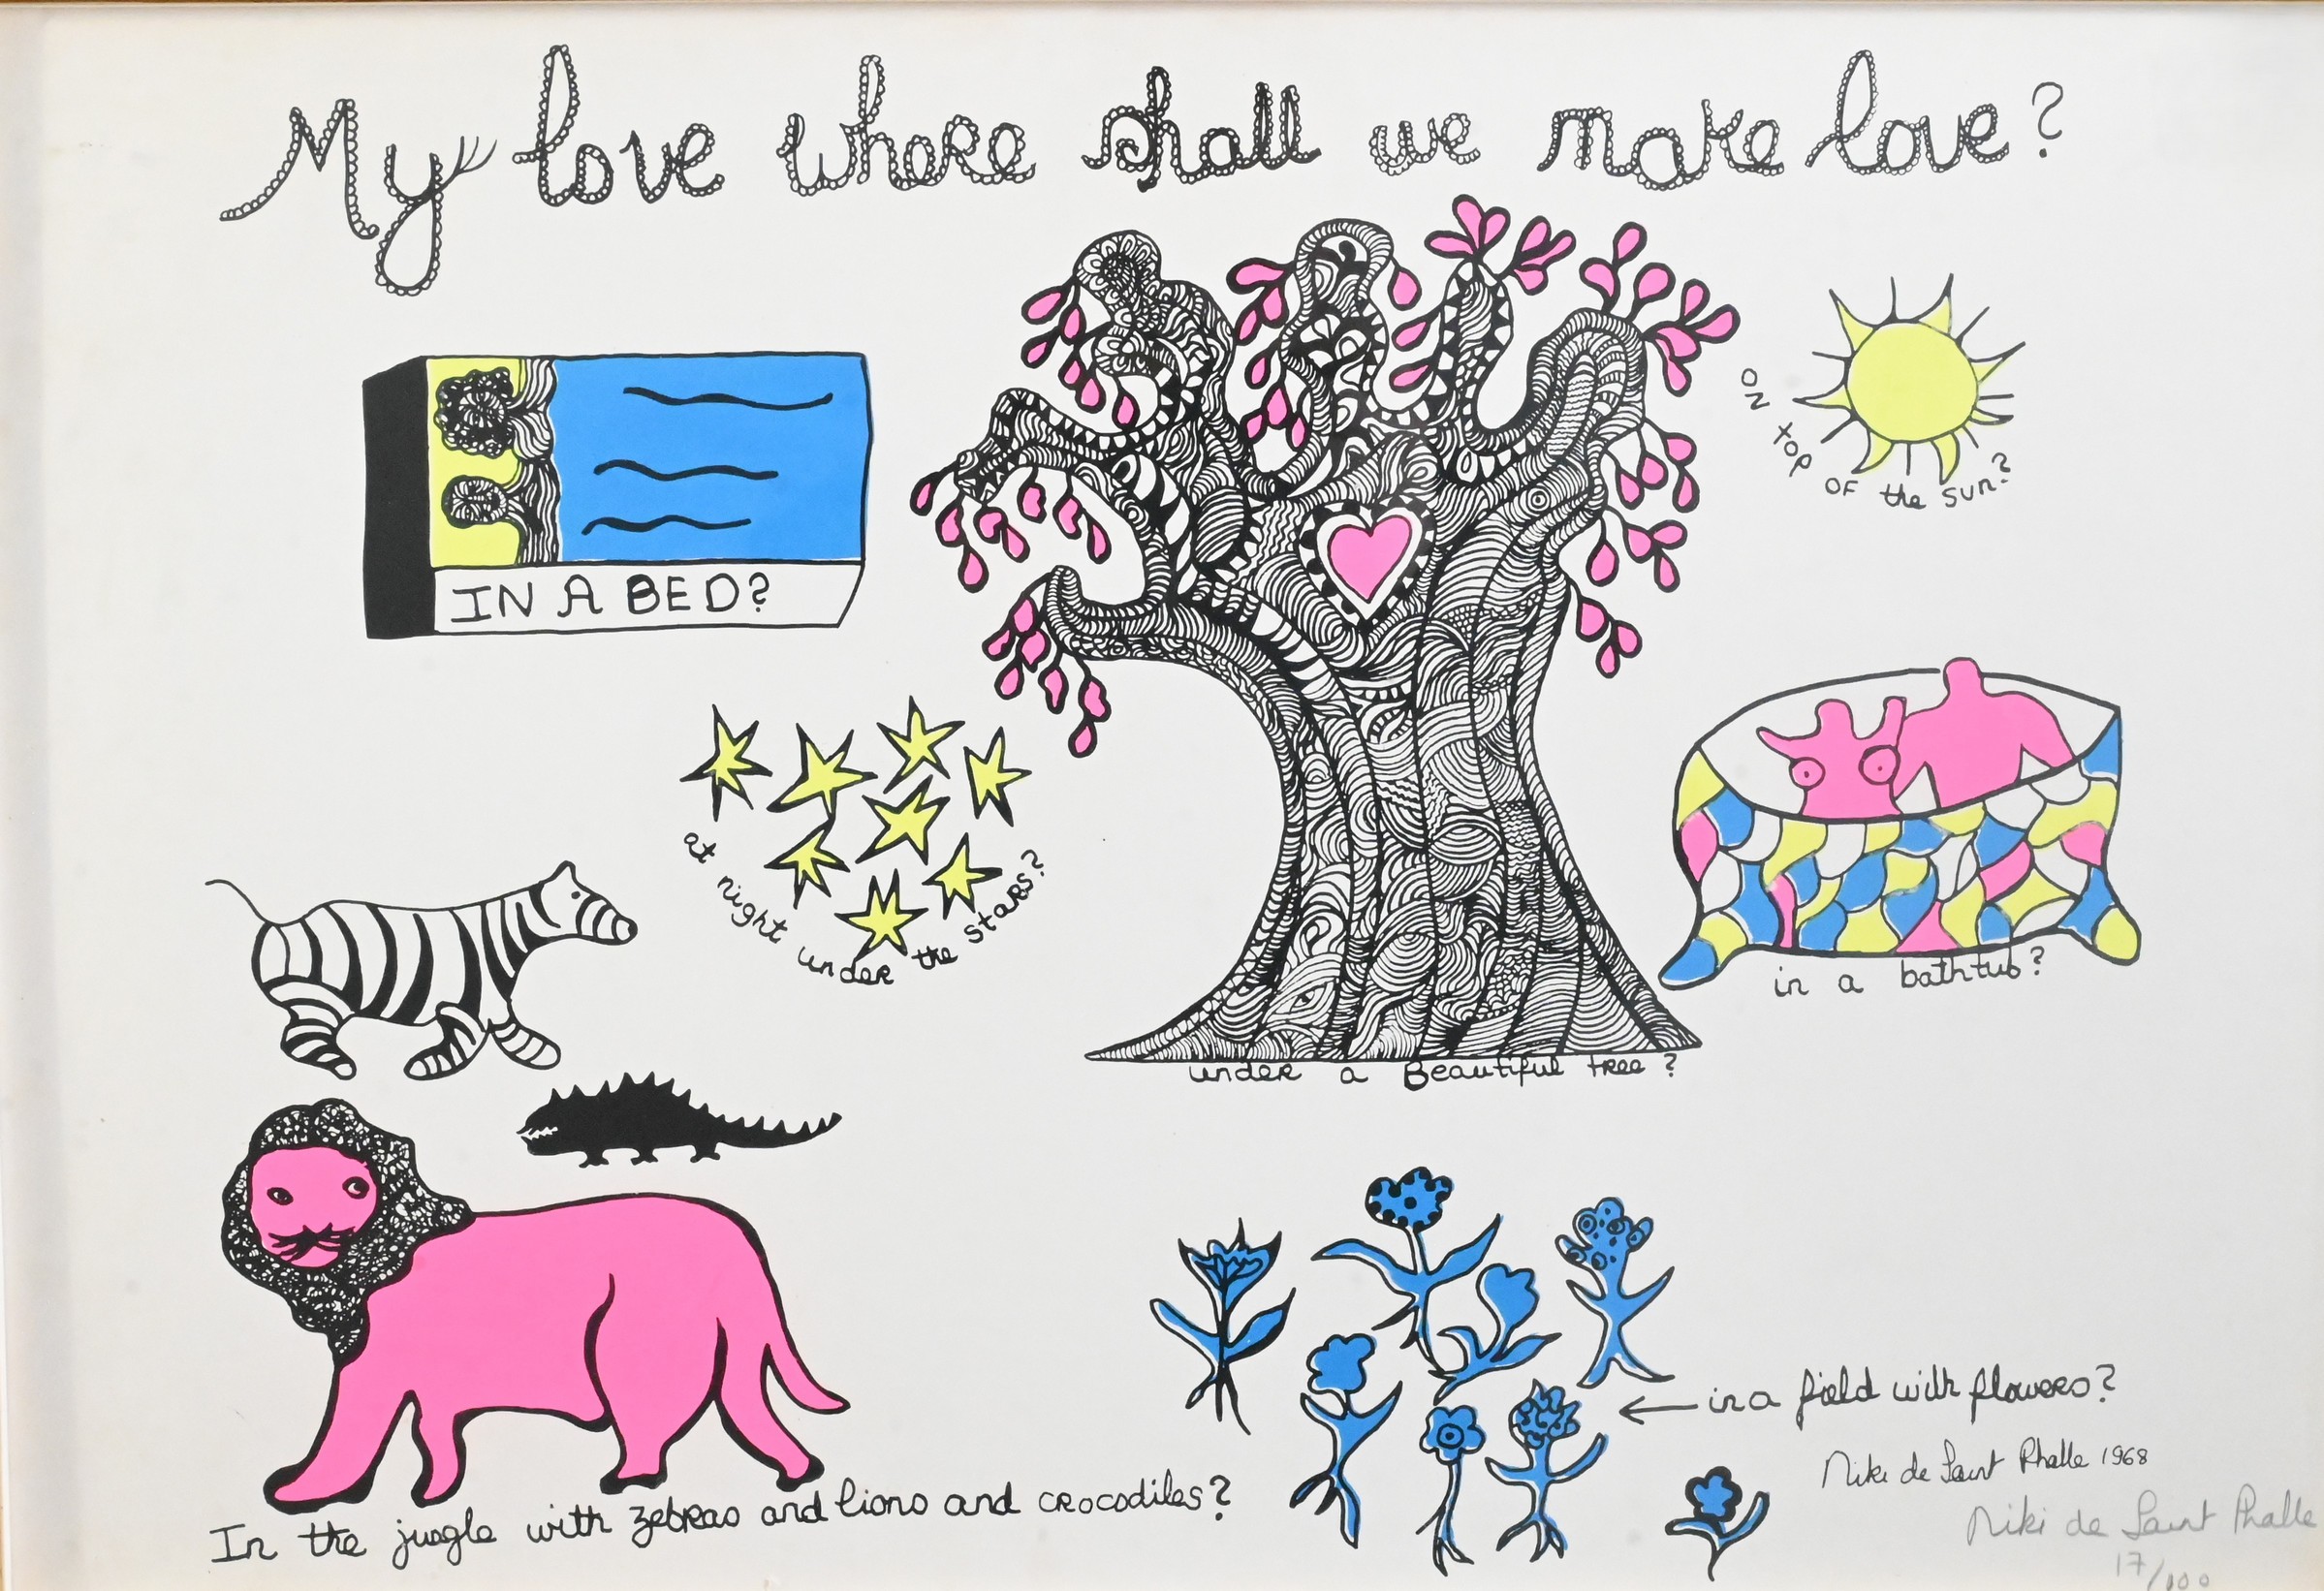 My love where shall we make love?
IN A BED?
ON top OF the sun?
at night under the stars?
in a bathtub?
under a Beautiful tree?
in a field with flowers?
In the jungle with zebras and lions and crocodiles?
Niki de Saint Phalle 1968
Niki de Saint Phalle
17/100